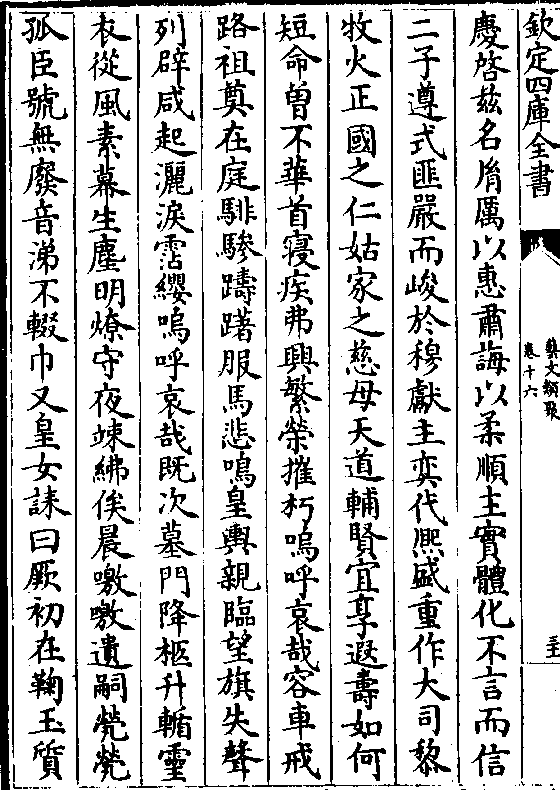 欽定四庫全書
藝文類聚
卷十六
慶啓兹名胤厲以惠肅誨以柔順主實體化不言而信
二子遵式匪嚴而峻於穆獻主奕代熈盛重作大司黎
牧火正國之仁姑家之慈母天道輔賢宜享遐壽如何
短命曾不華首寝疾弗興繁榮摧朽嗚呼哀哉容車戒
路祖奠在庭騑驂躊躇服馬悲鳴皇輿親臨望旗失聲
列辟咸起灑淚霑纓嗚呼哀哉既次墓門降柩升輴靈
衣從風素幕生塵明燎守夜竦紼俟晨噭噭遺嗣煢煢
孤臣號無廢音涕不輟巾又皇女誄曰厥初在鞠玉質